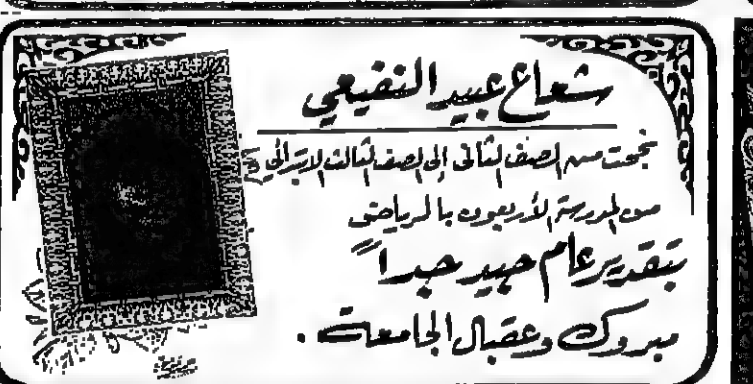 شعاع عبيد النفيعي
نجحت من الصف الثاني إلى الصف الثالث الابتدائي
من المدرسة الأربعون بالرياض
بتقدير عام جيد جداً
مبروك وعقبال الجامعة .